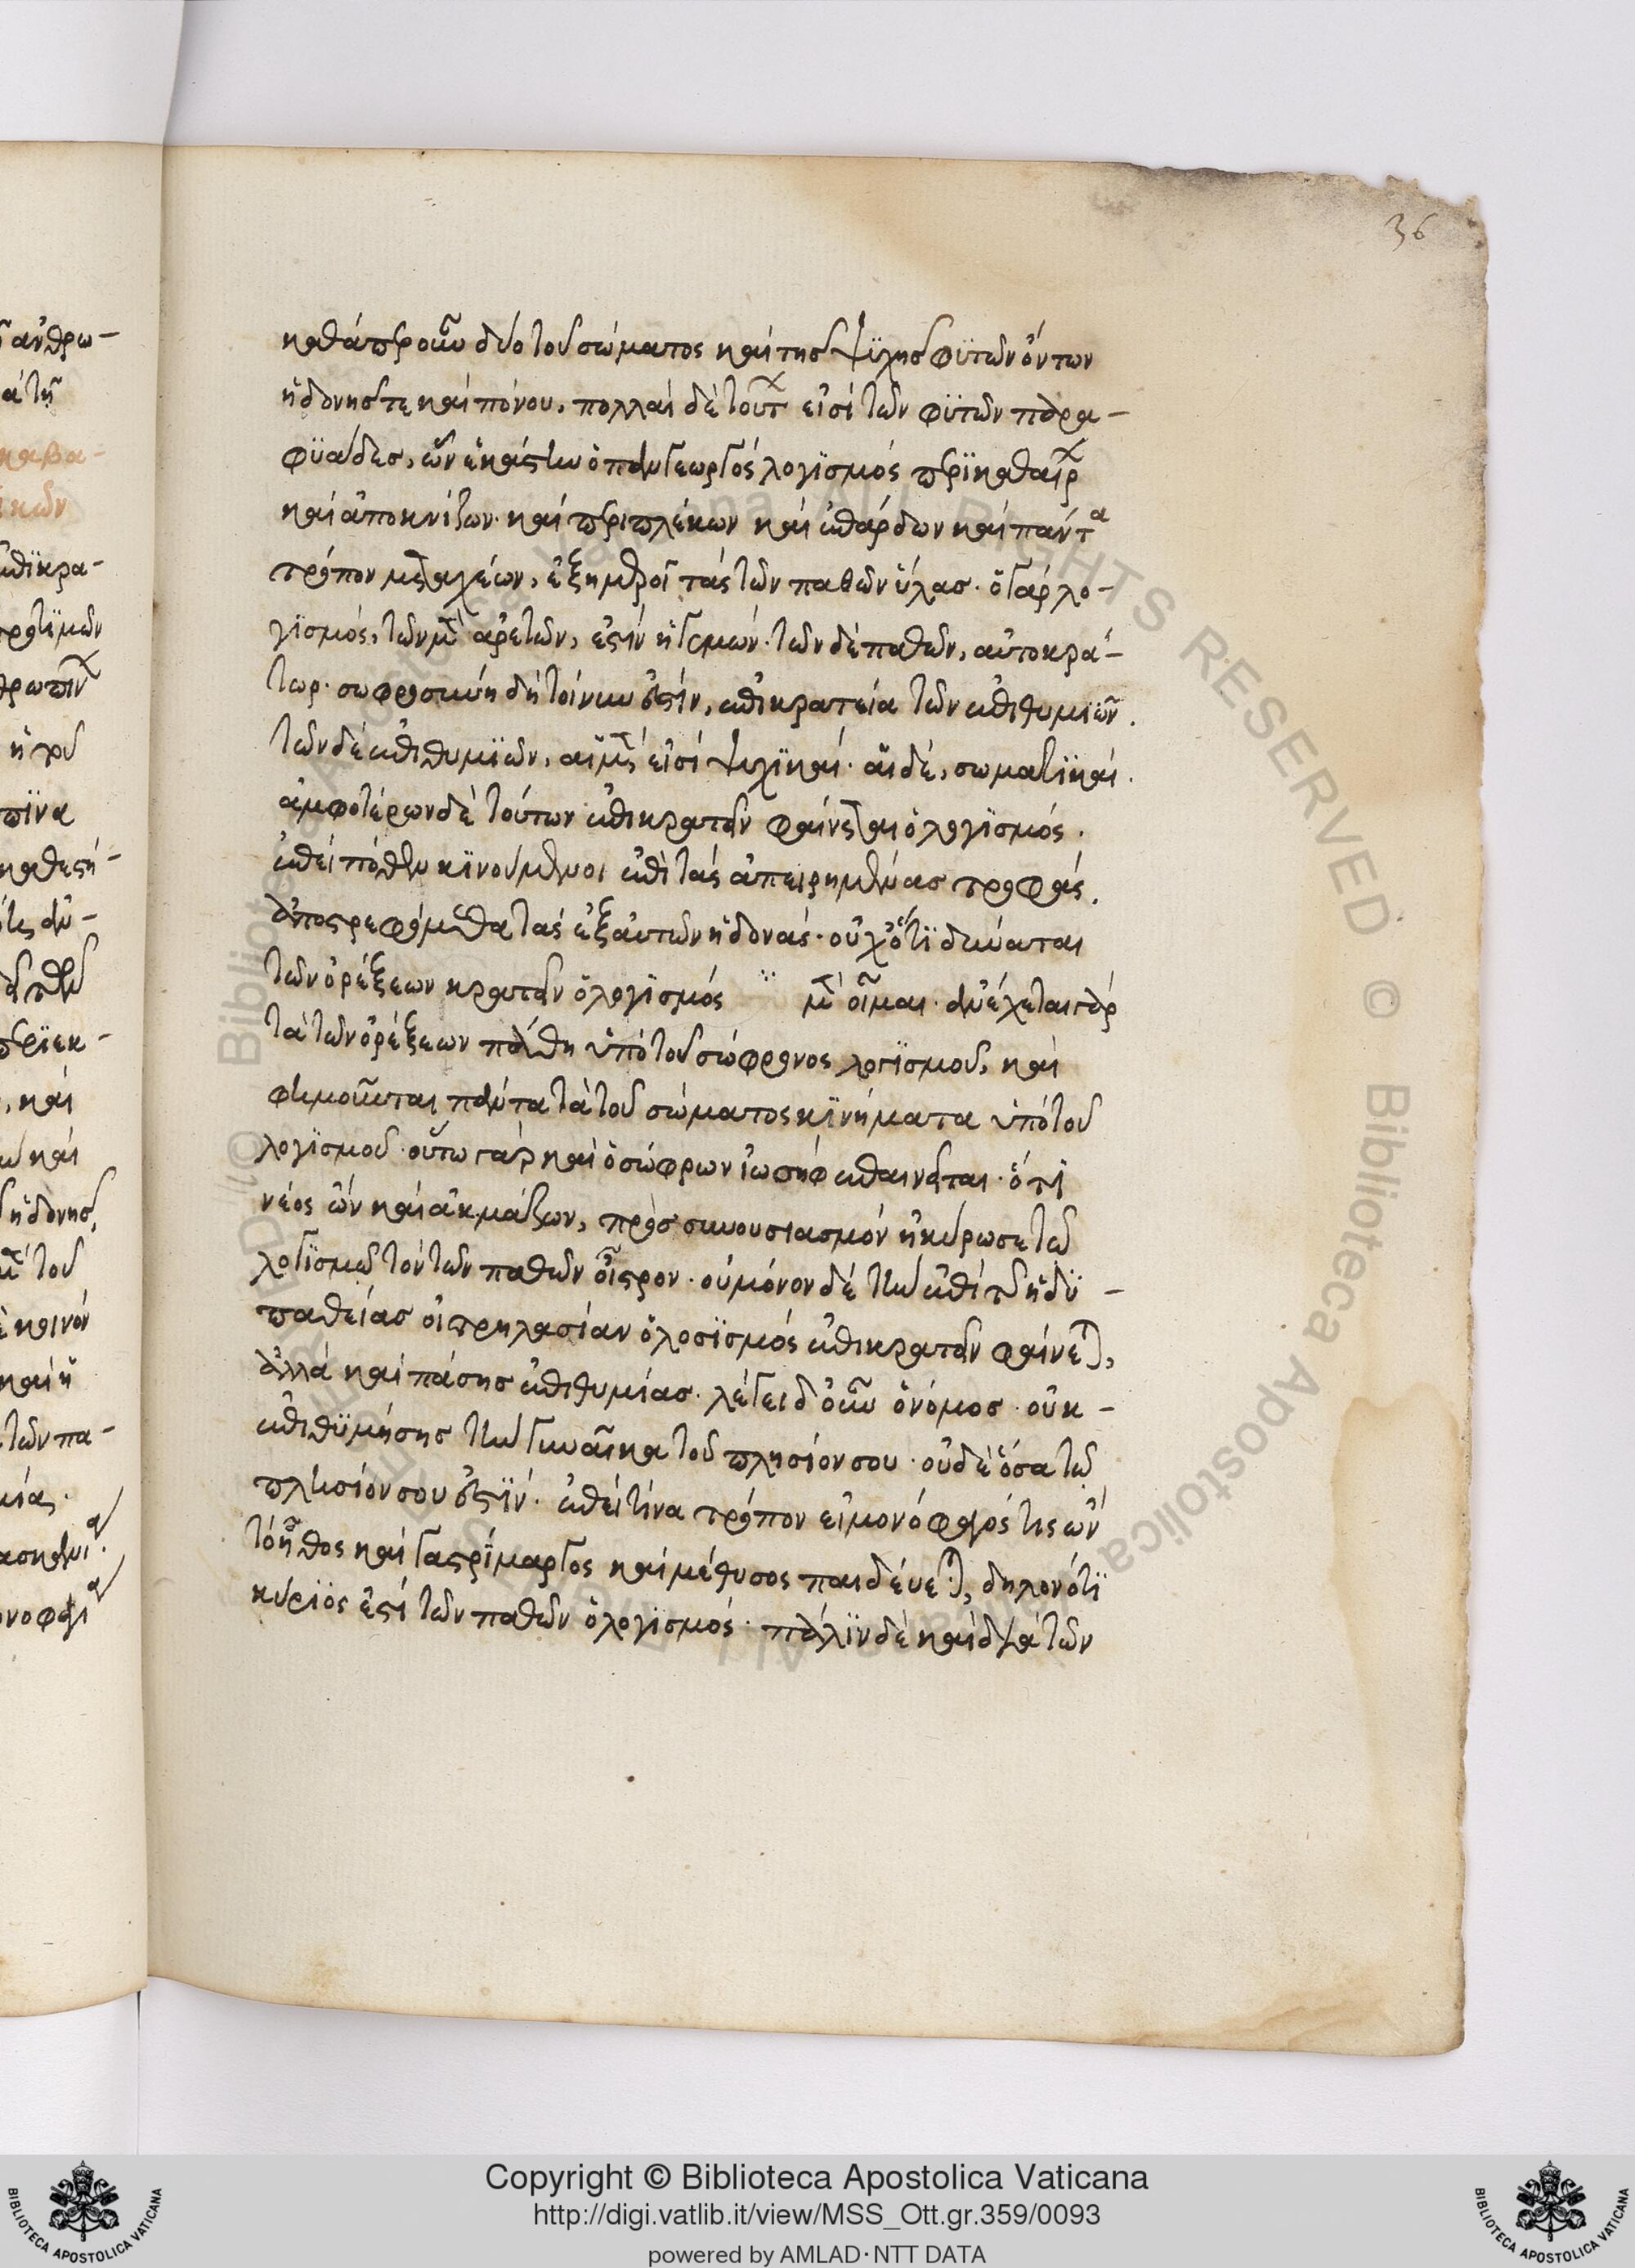 36
καθάπερ οὖν δύο τοῦ σώματος καὶ τῆς ψϋχῆς φϋτῶν ὄντων
ἡδονῆς τε καὶ πόνου, πολλαὶ δὲ τουτ εἰσὶ τῶν φϋτῶν παρα-
φϋάδες, ὧν ἑκάστην ὁ πανγεωργὸς λογϊσμὸς περϊκαθαιρ
καὶ ἀποκνίζων· καὶ περιπλέκων καὶ ἐπάρδων καὶ πάντα
τρόπον μεταχέων, ἐξημεροῖ τὰς τῶν παθῶν ὕλας· ὁ γὰρ λο-
γϊσμὸς, τῶν μὲν ἀρετῶν, ἐστὶν ἡγεμών· τῶν δὲ παθῶν, αὐτοκρά-
τωρ· σωφροσύνη δὴ τοίνυν ἐστὶν, ἐπικρατεία τῶν ἐπιθυμϊῶν.
τῶν δὲ ἐπιθυμϊῶν, αἱ μέν εἰσι ψυχϊκαί· αἱ δὲ, σωματϊκαί.
ἀμφοτέρων δὲ τούτων ἐπικρατεῖν φαίνεται ὁ λογϊσμός.
ἐπεὶ πόθεν κϊνούμενοι ἐπὶ τὰς ἀπειρημένας τροφάς.
ἀποστρεφόμεθα τὰς ἐξ αὐτῶν ἡδονάς· οὐχ ὅτϊ δύναται
τῶν ὀρέξεων κρατεῖν ὁ λογϊσμός μὲν οἶμαι· ἀνέχεται γὰρ
τὰ τῶν ὀρέξεων πάθη ὑπὸ τοῦ σώφρονος λογϊσμοῦ, καὶ
φιμοῦνται πάντα τὰ τοῦ σώματος κϊνήματα ὑπὸ τοῦ
λογϊσμοῦ· οὕτω γὰρ καὶ ὁ σώφρων ἰωσὴφ ἐπαινεῖται· ὅτι
νέος ὢν καὶ ἀκμάζων, πρὸς συνουσιασμὸν ἠκύρωσε τῷ
λογϊσμῷ τὸν τῶν παθῶν οἶστρον· οὐ μόνον δὲ τὴν ἐπὶ τῆς ἡδϋ-
παθείας οἰστρηλασίαν ὁ λογϊσμὸς ἐπικρατεῖν φαίνεται,
ἀλλὰ καὶ πάσης ἐπιθυμίας· λέγει δ' οὖν ὁ νόμος· οὐκ-
ἐπιθϋμήσης τὴν γυναῖκα τοῦ πλησίον σου· οὐδὲ ὅσα τῷ
πλησίον σου ἐστϊν· ἐπεὶ τίνα τρόπον εἰ μονόφαγός τις ὢν
τὸ ἦθος καὶ γαστρίμαργος καὶ μέθυσος παιδεύεται, δῆλον ὅτϊ
κύριός ἐστι τῶν παθῶν ὁ λογϊσμός· πάλϊν δὲ καὶ διὰ τῶν
Copyright © Biblioteca Apostolica Vaticana
http://digi.vatlib.it/view/MSS_Ott.gr.359/0093
powered by AMLAD·NTT DATA
BIBLIOTECA APOSTOLICA VATICANA
BIBLIOTECA APOSTOLICA VATICANA